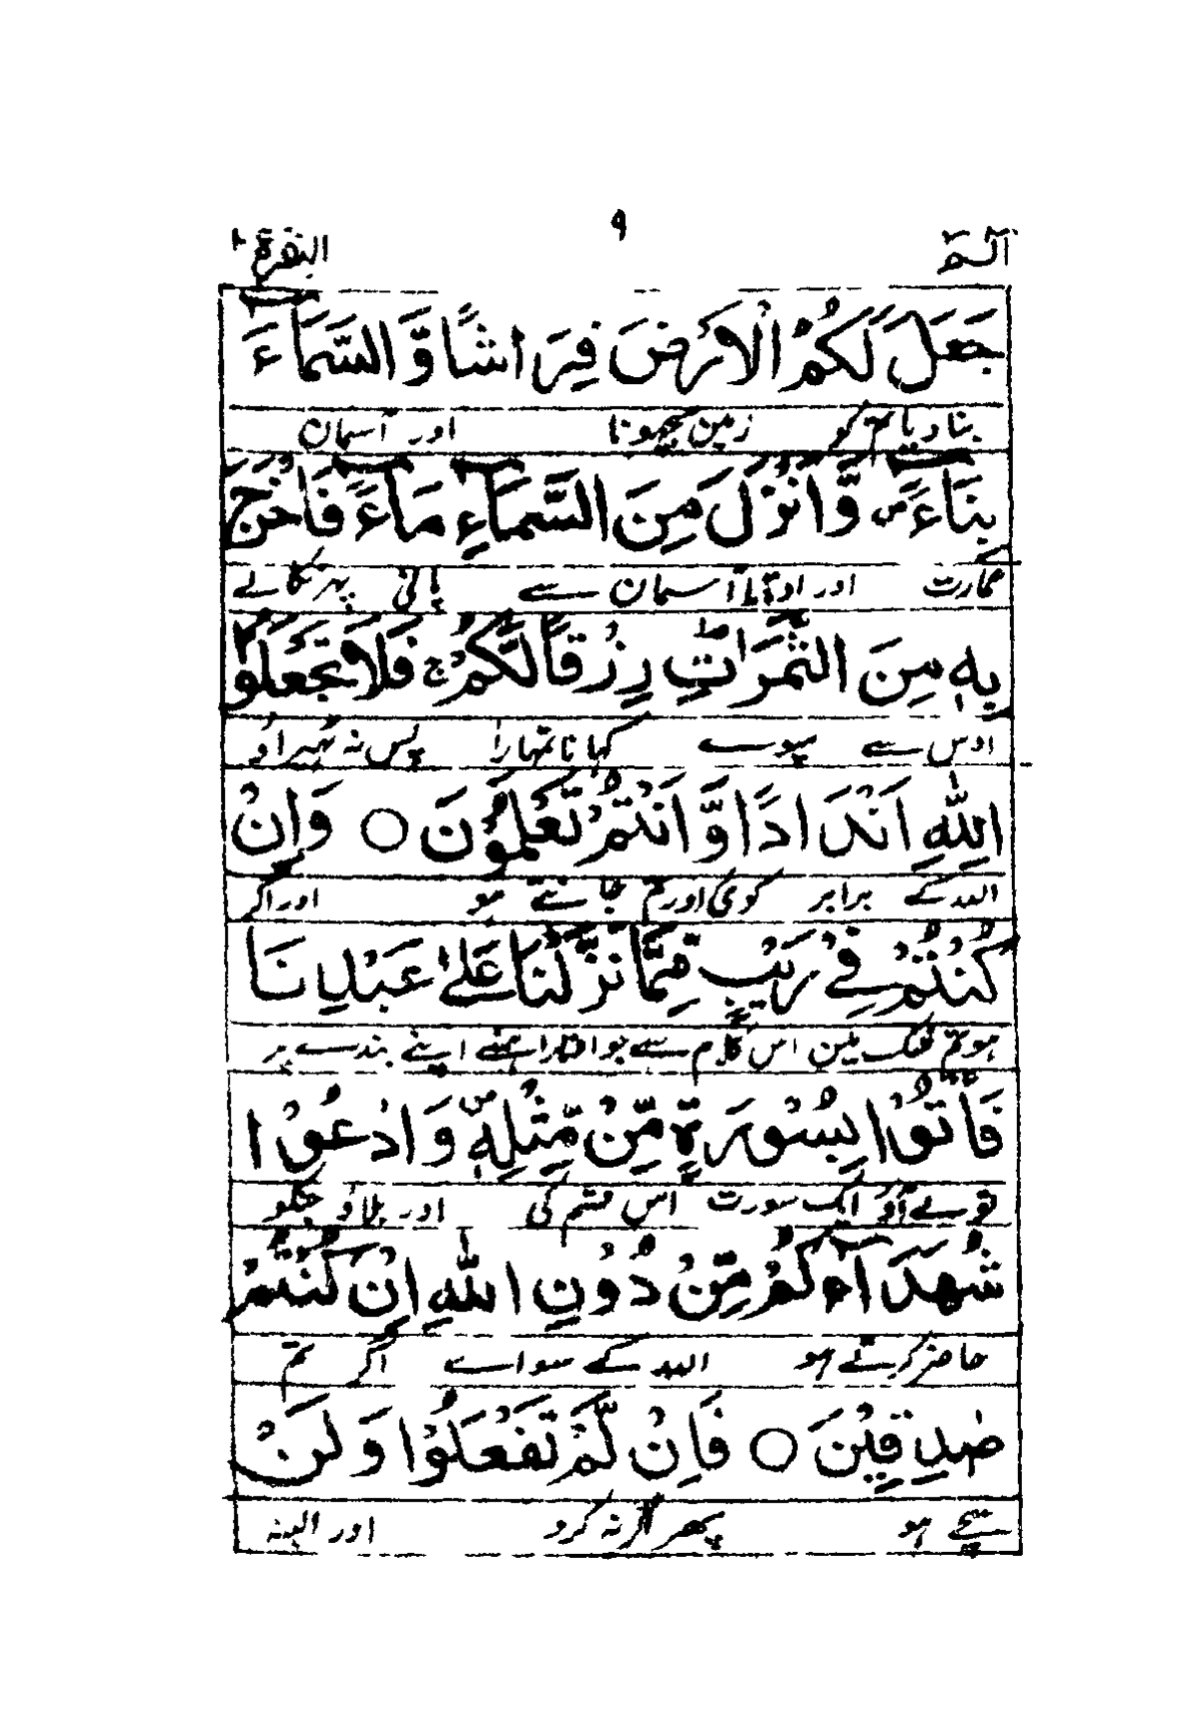 البقرة ٢ ٩ الٓـمّٓ
جَعَلَ لَكُمُ الْاَرْضَ فِرَاشًا وَّالسَّمَآءَ
بنا دیا تم کو زمین بچھونا اور آسمان
بِنَآءً ص وَّاَنْزَلَ مِنَ السَّمَآءِ مَآءً فَاَخْرَجَ
عمارت اور اوتارا آسمان سے پانی پہر نکالے
بِهٖ مِنَ الثَّمَرٰتِ رِزْقًا لَّكُمْ ج فَلَا تَجْعَلُوْا
اوس سے میوے کہانا تمہارا پس نہ ٹہیراؤ
لِلّٰهِ اَنْدَادًا وَّاَنْتُمْ تَعْلَمُوْنَ ○ وَاِنْ
اللہ کے برابر کوئی اور تم جانتے ہو اور اگر
كُنْتُمْ فِيْ رَيْبٍ مِّمَّا نَزَّلْنَا عَلٰى عَبْدِنَا
ہو تم شک مین اس کلام سے جو اوتارا ہمنے اپنے بندے پر
فَاْتُوْا بِسُوْرَةٍ مِّنْ مِّثْلِهٖ ص وَادْعُوْا
تو لے آؤ ایک سورت اس قسم کی اور بلاؤ جنکو
شُهَدَآءَكُمْ مِّنْ دُوْنِ اللّٰهِ اِنْ كُنْتُمْ
حاضر کرتے ہو اللہ کے سواے اگر تم
صٰدِقِيْنَ ○ فَاِنْ لَّمْ تَفْعَلُوْا وَلَنْ
سچے ہو پھر اگر نہ کرو اور البتہ